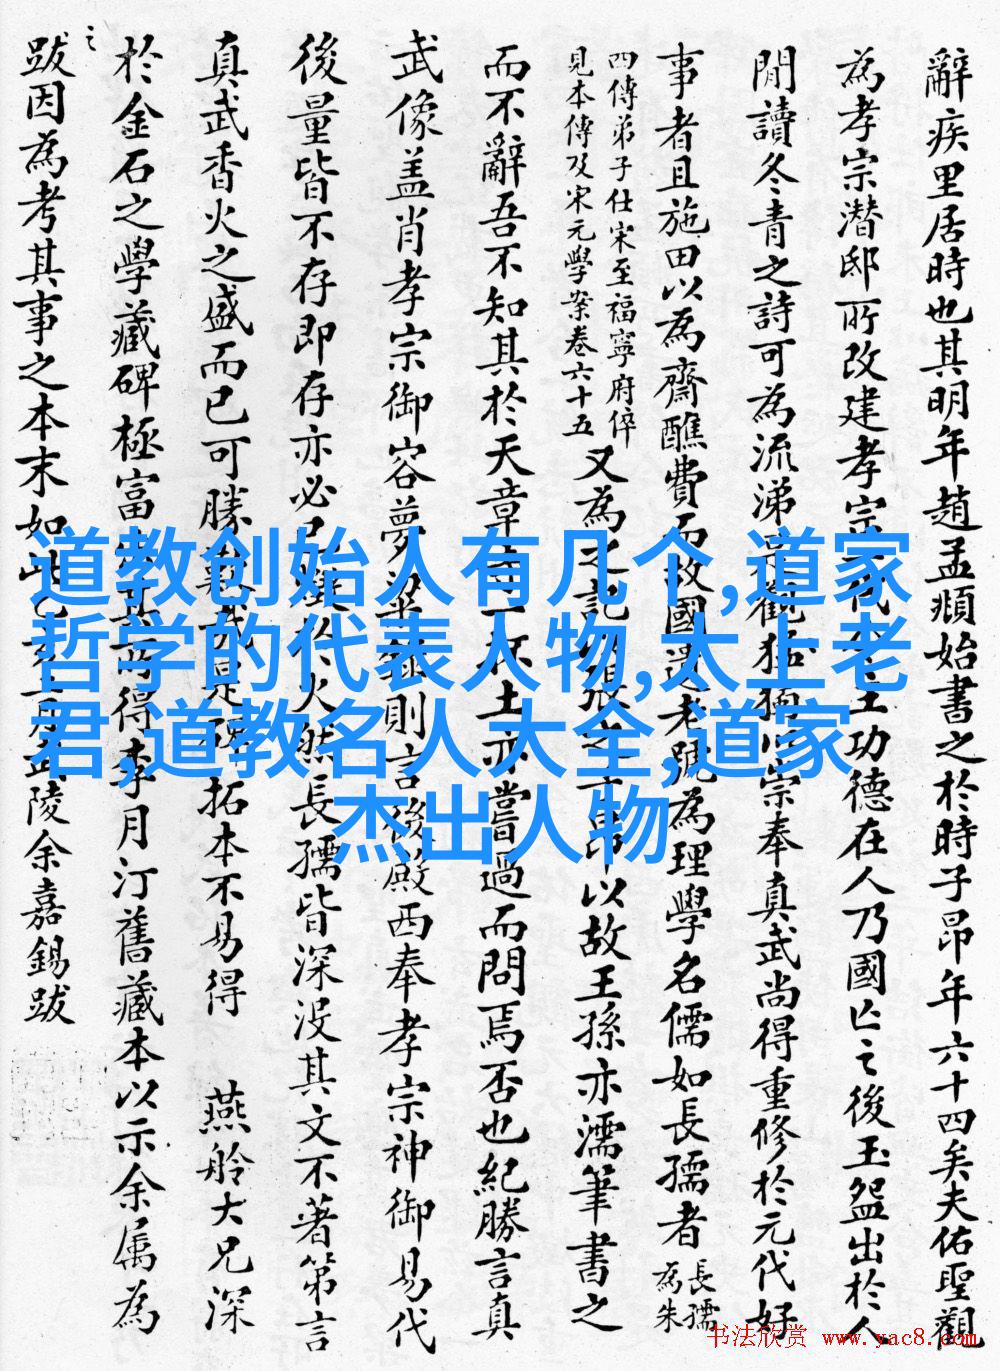 辭疾里居時也其明年趙孟頫始書之於時子昂年六十四矣夫佑聖觀
為孝宗潛邸所改建孝宗代主功德在人乃國亡之後玉盌出於人
閒讀冬青之詩可為流涕觀猶宗奉真武尚得重修於元代好
事者且施田以為齋醮費而故國遺老號為理學名儒如長孺者長孺為朱
四傳弟子仕宋至福寧府倅
見本傳及宋元學案卷六十五
又為之記張之子昂以故王孫亦濡筆書之
而不辭吾不知其於天章土亦嘗過而問焉否也紀勝言真
武像盖肖孝宗御容夢則言後殿西奉孝宗神御易代
後量皆不存即存亦必火然長孺皆深没其文不著第言
真武香火之盛而已可勝是碑拓本不易得 燕舲大兄深
於金石之學藏碑極富得李月汀舊藏本以示余属為
之
跋因為考其事之本末如此月武陵余嘉錫跋
道教创始人有几个,道家
哲学的代表人物,太上老
君,道教名人大全,道家
杰出人物
书法欣赏 www.yac8.com